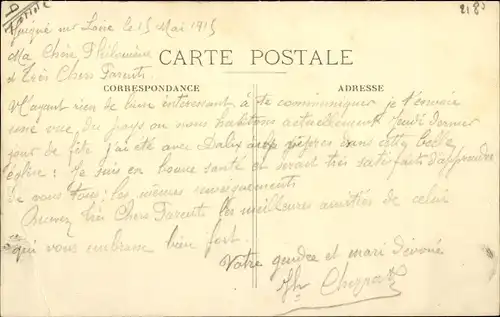 2180
sur Loire le 15 Mai 1915
Ma Chère Philomène
et Très Chers Parents
CARTE POSTALE
CORRESPONDANCE
ADRESSE
N'ayant rien de bien intéressant à te communiquer je t'envoie
une vue du pays ou nous habitons actuellement Jeudi dernier
jour de fête j'ai été avec dans cette belle
église : Je suis en bonne santé et serait très satisfait d'apprendre
de vous tous : les mêmes renseignements
Recevez Très Chers Parents les meilleures amitiés de celui
qui vous embrasse bien fort.
Votre gendre et mari dévoué